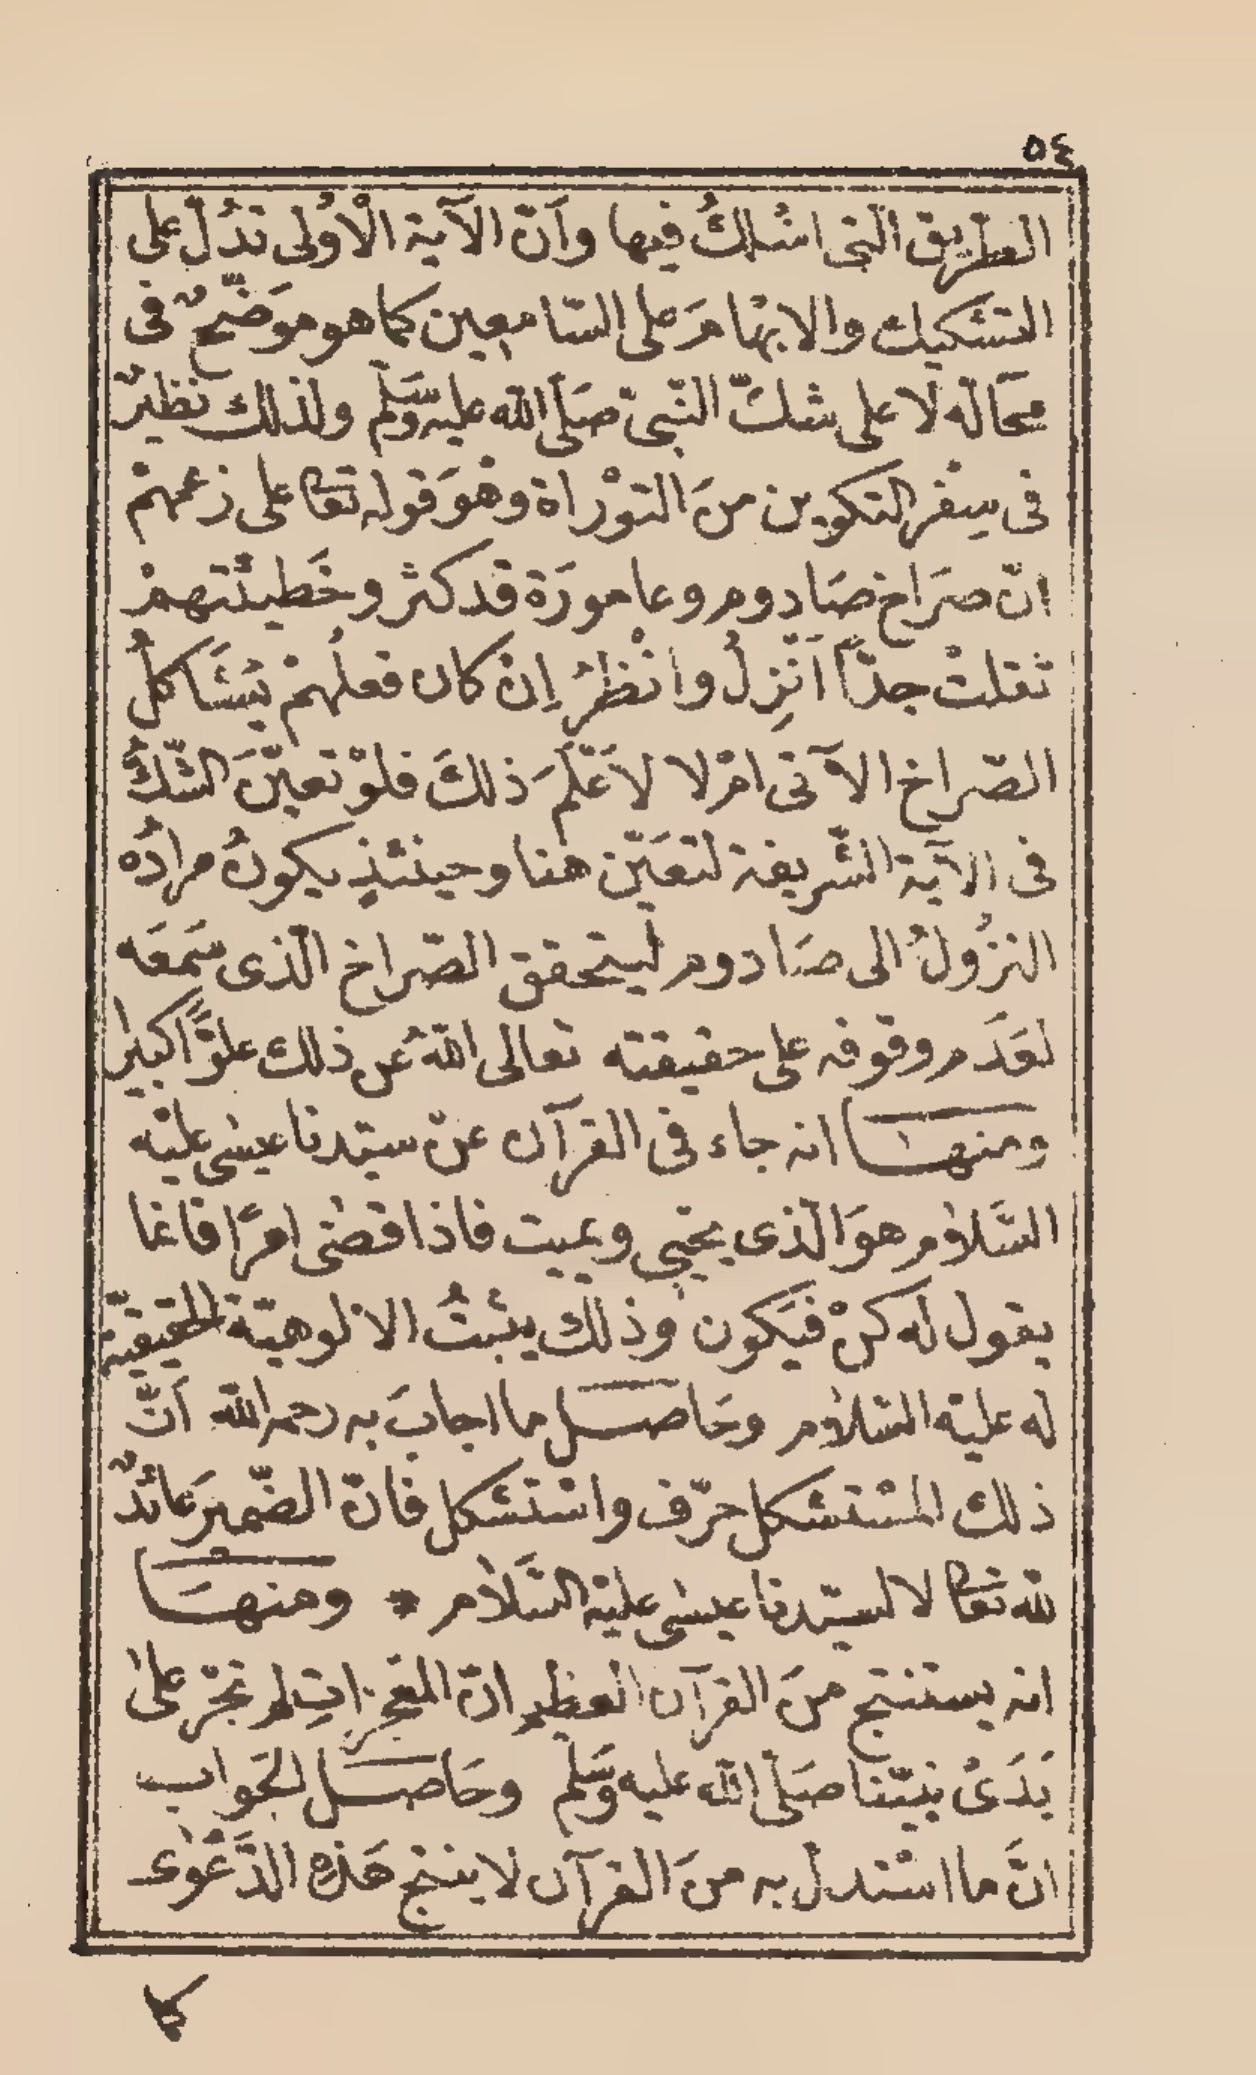 ٥٤
الطريق التى اسْلكُ فيها وأنّ الآية الْاُولى تدُلّ على
التشكيك والابهام على السّامعين كما هو موَضَّحٌ فى
محَاله لا على شكّ النّبىّ صَلّى الله عليه وسَلّم ولذلك نظيرٌ
فى سِفْر التكوين منَ التوْراة وهْوَ قوله تعا على زعمهمْ
انّ صرَاخ صَادوم وعامورَة قد كثر وخَطيئتهمْ
ثقلتْ جدّاً اَنْزِلُ وانْظرُ إنْ كان فعلُهمْ يُشَاكلُ
الصّراخ الآتى امْ لا لاَعْلَمَ ذلكَ فلوْ تعيّنَ الشّكُّ
فى الآيَة الشّريفة لتعَيّن هنا وحينئذٍ يكونُ مرادُه
النزُولُ الى صَادوم ليتحقق الصّراخ الّذى سَمعَه
لعَدَم وقوفه على حقيقته تعالى اللهُ عن ذلك علوًّا كبيرا
ومنهَا انه جاء فى القرآن عنْ سيّدنا عيسٰى عليْه
السَّلاٰم هوَ الّذى يحْيى ويميت فاذا قضٰى امرًا فانما
يقول له كنْ فيَكون وذلك يثبتُ الالوهيّة الحقيقيّة
له عليْه السّلاٰم وحَاصل ما اجابَ به رحمه الله اَنّ
ذلك المسْتشكل حرّف واسْتشكل فانّ الضّميرَ عائدٌ
لله تعا لا لسيّدنا عيسٰى عليْه السَّلاٰم * ومنهَا
انه يستنتج منَ القرآن العظيم انّ المعْجزاتِ لم تجْر علىٰ
يَدَىْ نبيّنا صَلّى الله عليه وسَلّم وحَاصل الجَواب
انَّ ما اسْتدلّ به منَ القرآن لا ينتج هَذِه الدَّعْوٰى
كا